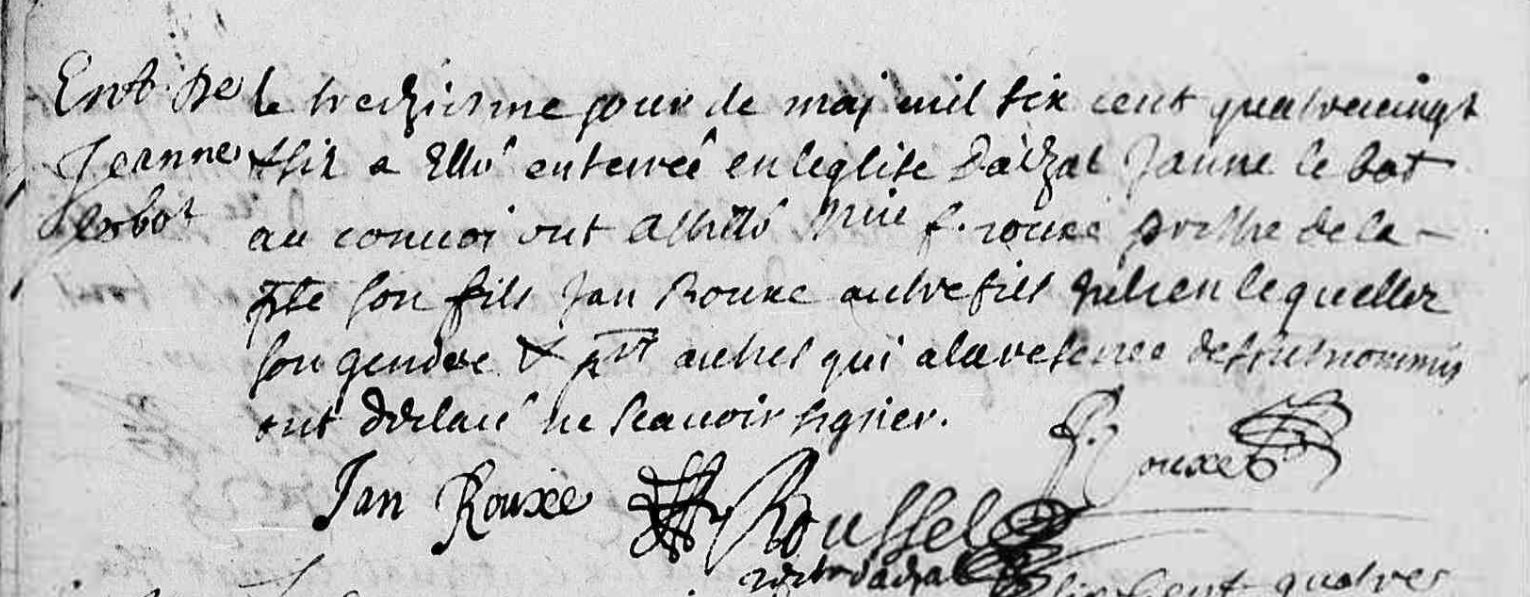 Ent. de
Jeanne
lebot
le treziesme jour de may mil six cent quatrevingt
& six a esté enterreé en leglise dazal Janne le bot
au convoi ont assisté f. rouxe prestre de la
pte son fils Jan Rouxe autre fils Julien lequeller
son gendre & autres qui a la resence des susnommés
ont declaré ne scavoir signer.
f. Rouxe
Jan Rouxe Roussel
six cent quatre